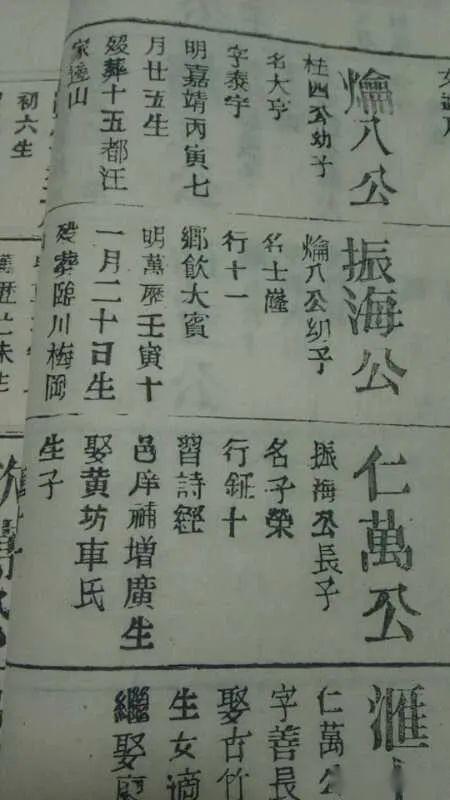 爚八公
桂四公幼子
名大亨
字泰宇
明嘉靖丙寅七
月廿五生
歿葬十五都汪
家邊山
振海公
爚八公幼子
名士隆
行十一
鄉飲大賓
明萬歷壬寅十
一月二十日生
歿葬臨川梅岡
仁萬公
振海公長子
名子榮
行鉦十
習詩經
邑庠補增廣生
娶黄坊車氏
生子
滙
仁萬公
字善長
娶古竹
生女適
繼娶
初六生